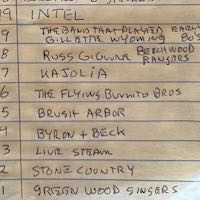 19 INTEL
9 THE BAND THAT PLAYED EARLY
GILLETTE WYOMING 80'S
8 RUSS GIGUERE BEECHWOOD
RANGERS
7 KAJOLIA
6 THE FLYING BURRITO BROS
5 BRUSH ARBOR
4 BYRON + BECK
3 LIVE STEAM
2 STONE COUNTRY
1 GREEN WOOD SINGERS